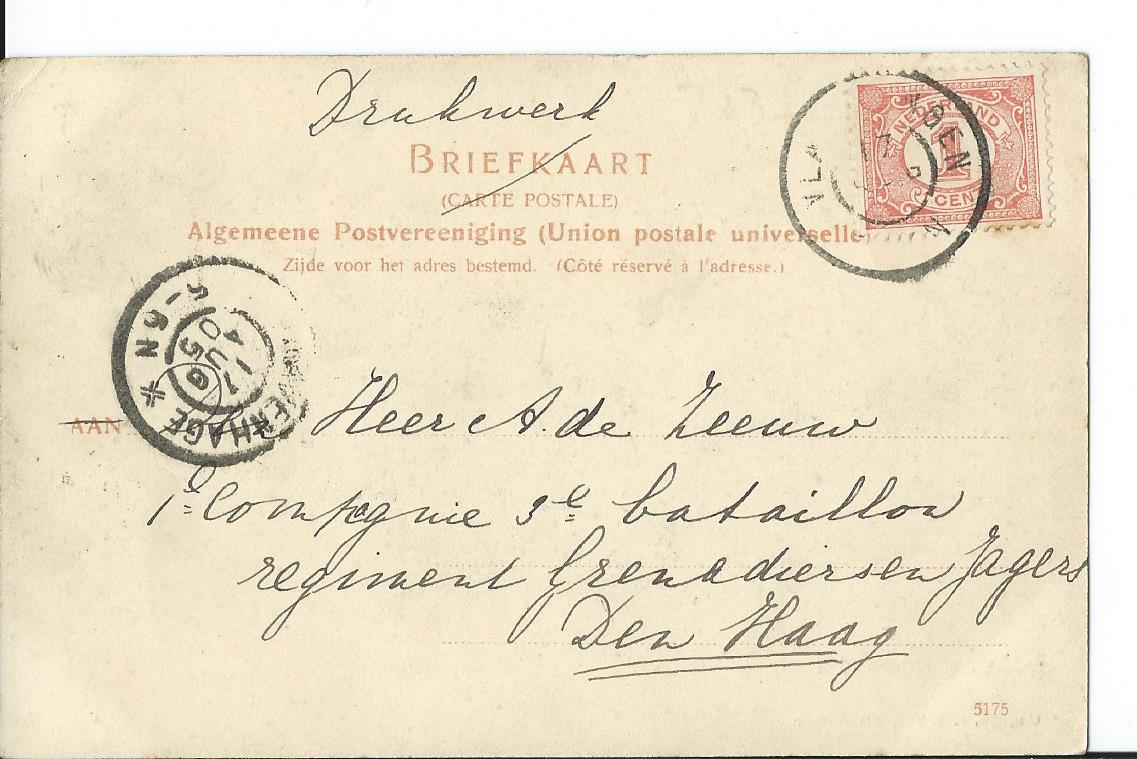 Drukwerk
BRIEFKAART
(CARTE POSTALE)
Algemeene Postvereeniging (Union postale universelle)
Zijde voor het adres bestemd. (Côté réservé à l'adresse.)
NEDERLAND
1
CENT
VLA
GEN
5-6N
17
AUG
05
ENHAGE
AAN
Heer A. de Zeeuw
1e Compagnie 3e bataillon
regiment Grenadiers en Jagers
Den Haag
5175